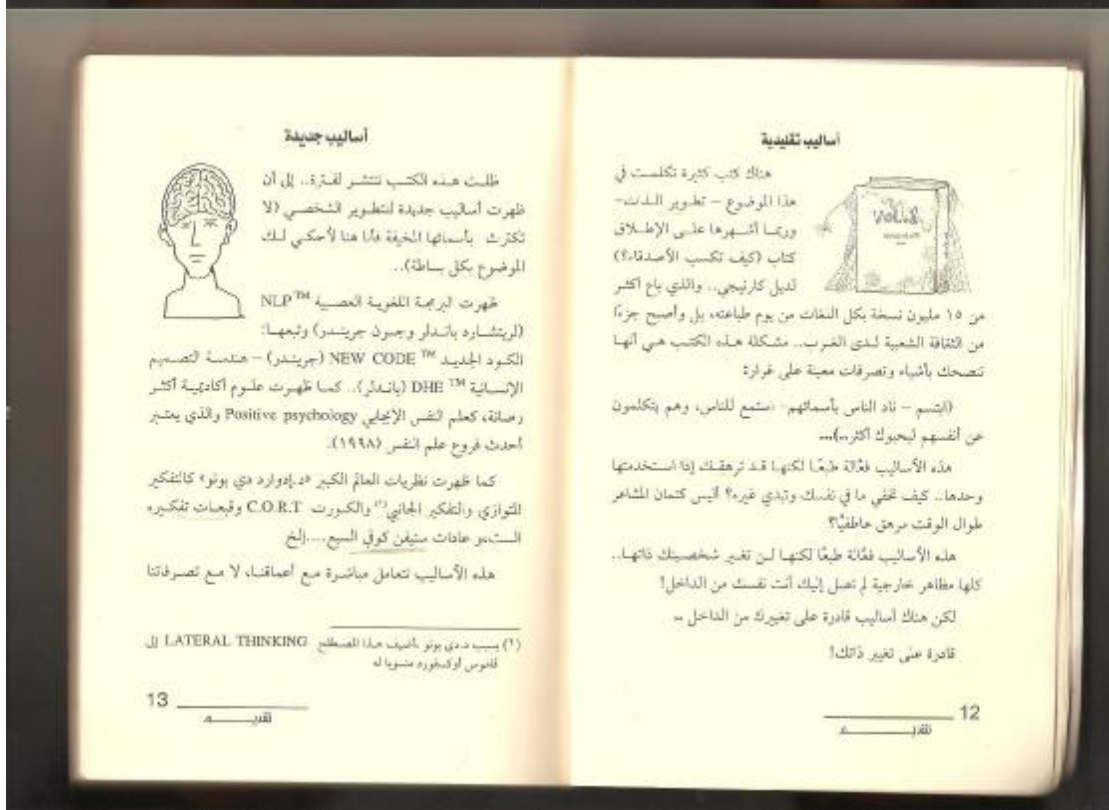 أساليب تقليدية
هناك كتب كثيرة تكلمت في
هذا الموضوع – تطوير الذات–
وربما أشهرها على الإطلاق
كتاب (كيف تكسب الأصدقاء؟)
لديل كارنيجي.. والذي باع أكثر
من ١٥ مليون نسخة بكل اللغات من يوم طباعته، بل وأصبح جزءًا
من الثقافة الشعبية لدى الغرب.. مشكلة هذه الكتب هي أنها
تنصحك بأشياء وتصرفات معينة على غرار:
(ابتسم – ناد الناس بأسمائهم– استمع للناس، وهم يتكلمون
عن أنفسهم ليحبوك أكثر..)...
هذه الأساليب فعَّالة طبعًا لكنها قد ترهقك إذا استخدمتها
وحدها.. كيف تخفي ما في نفسك وتبدي غيره؟ أليس كتمان المشاعر
طوال الوقت مرهق عاطفيًّا؟
هذه الأساليب فعَّالة طبعًا لكنها لن تغير شخصيتك ذاتها..
كلها مظاهر خارجية لم تصل إليك أنت نفسك من الداخل!
لكن هناك أساليب قادرة على تغييرك من الداخل ..
قادرة على تغيير ذاتك!
12
تقديم
أساليب جديدة
ظلت هذه الكتب تنتشر لفترة.. إلى أن
ظهرت أساليب جديدة للتطوير الشخصي (لا
تكترث بأسمائها المخيفة فأنا هنا لأحكي لك
الموضوع بكل بساطة)...
ظهرت البرمجة اللغوية العصبية NLP™
(لريتشارد باندلر وجون جريندر) وتبعها:
الكود الجديد NEW CODE ™ (جريندر) – هندسة التصميم
الإنسانية DHE ™ (باندلر).. كما ظهرت علوم أكاديمية أكثر
رصانة، كعلم النفس الإيجابي Positive psychology والذي يعتبر
أحدث فروع علم النفس (١٩٩٨).
كما ظهرت نظريات العالم الكبير «د.إدوارد دي بونو» كالتفكير
المتوازي والتفكير الجانبي(١) والكورت C.O.R.T وقبعات تفكيره
الست، عادات ستيفن كوفي السبع....إلخ
هذه الأساليب تتعامل مباشرة مع أعماقنا، لا مع تصرفاتنا
(١) بسبب د.دي بونو أضيف هذا المصطلح LATERAL THINKING إلى
قاموس أوكسفورد منسوبا له
13
تقديم